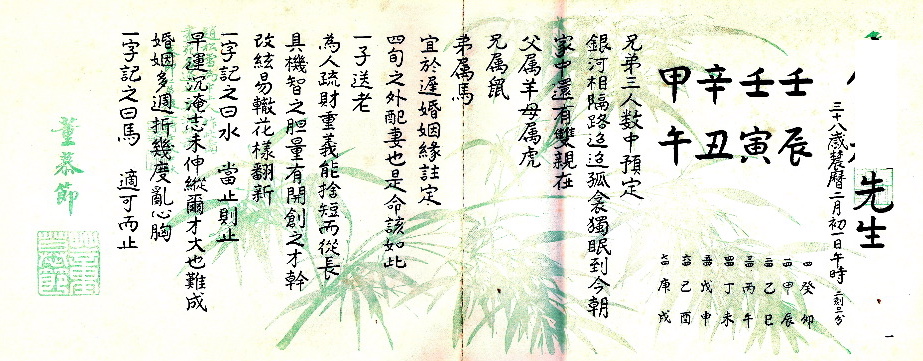 先生
三十八歲農曆二月初一日午時 二刻三分
壬辰
壬寅
辛丑
甲午
癸卯
甲辰
乙巳
丙午
丁未
戊申
己酉
庚戌
兄弟三人數中預定
銀河相隔路迢迢孤衾獨眠到今朝
家中還有雙親在
父屬羊母屬虎
兄屬鼠
弟屬馬
宜於遲婚姻緣註定
四旬之外配妻也是命該如此
一子送老
為人疏財重義能捨短而從長
具機智之胆量有開創之才幹
改絃易轍花樣翻新
一字記之曰水 當止則止
早運沉淹志未伸縱爾才大也難成
婚姻多週折幾度亂心胸
一字記之曰馬 適可而止
董慕節